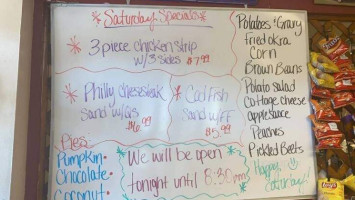 Saturday Specials
3 piece chicken strip
w/3 sides $7.99
Philly cheesesteak
Sand w/FF
$6.99
Cod Fish
Sand w/FF
$5.99
Pies:
Pumpkin
Chocolate
Coconut
We will be open
tonight until 8:30pm
Potatoes + Gravy
fried okra
Corn
Brown Beans
Potato salad
Cottage cheese
applesauce
Peaches
Pickled Beets
Happy
Saturday!